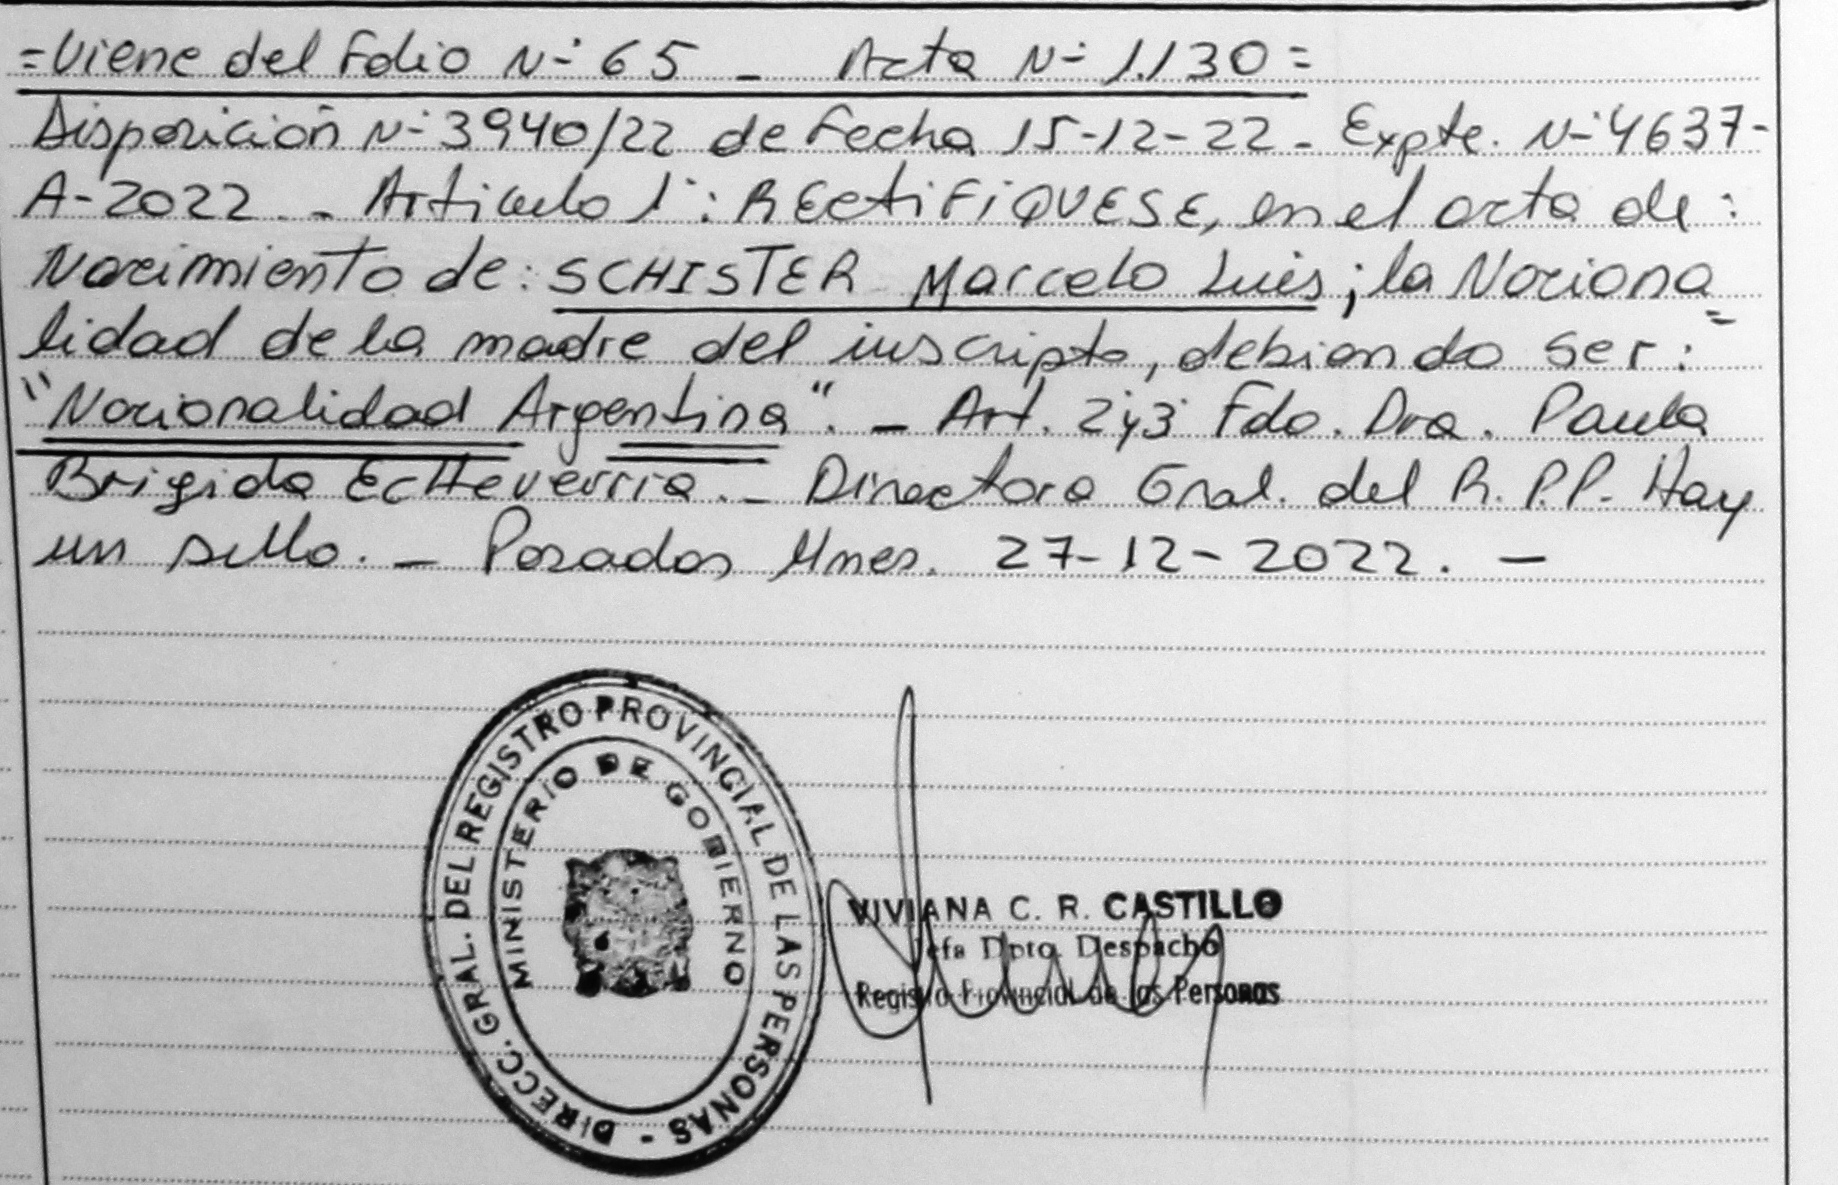 =Viene del Folio N° 65 - Acta N° 1.130=
Disposición N° 3940/22 de Fecha 15-12-22 - Expte. N° 4637-
A-2022. - Articulo 1°: RECtiFiQUESE, en el acta de:
Nacimiento de: SCHISTER Marcelo Luis; la Naciona=
lidad de la madre del inscripto, debiendo ser:
"Nacionalidad Argentina". - Art. 2y3 Fdo. Dra. Paula
Brigida EcHeverria. - Directora Gral. del R.P.P. Hay
un sello. - Posadas Mnes. 27-12-2022. -
DIRECC. GRAL. DEL REGISTRO PROVINCIAL DE LAS PERSONAS -
MINISTERIO DE GOBIERNO
VIVIANA C. R. CASTILLO
Jefa Dpto. Despacho
Registro Provincial de las Personas